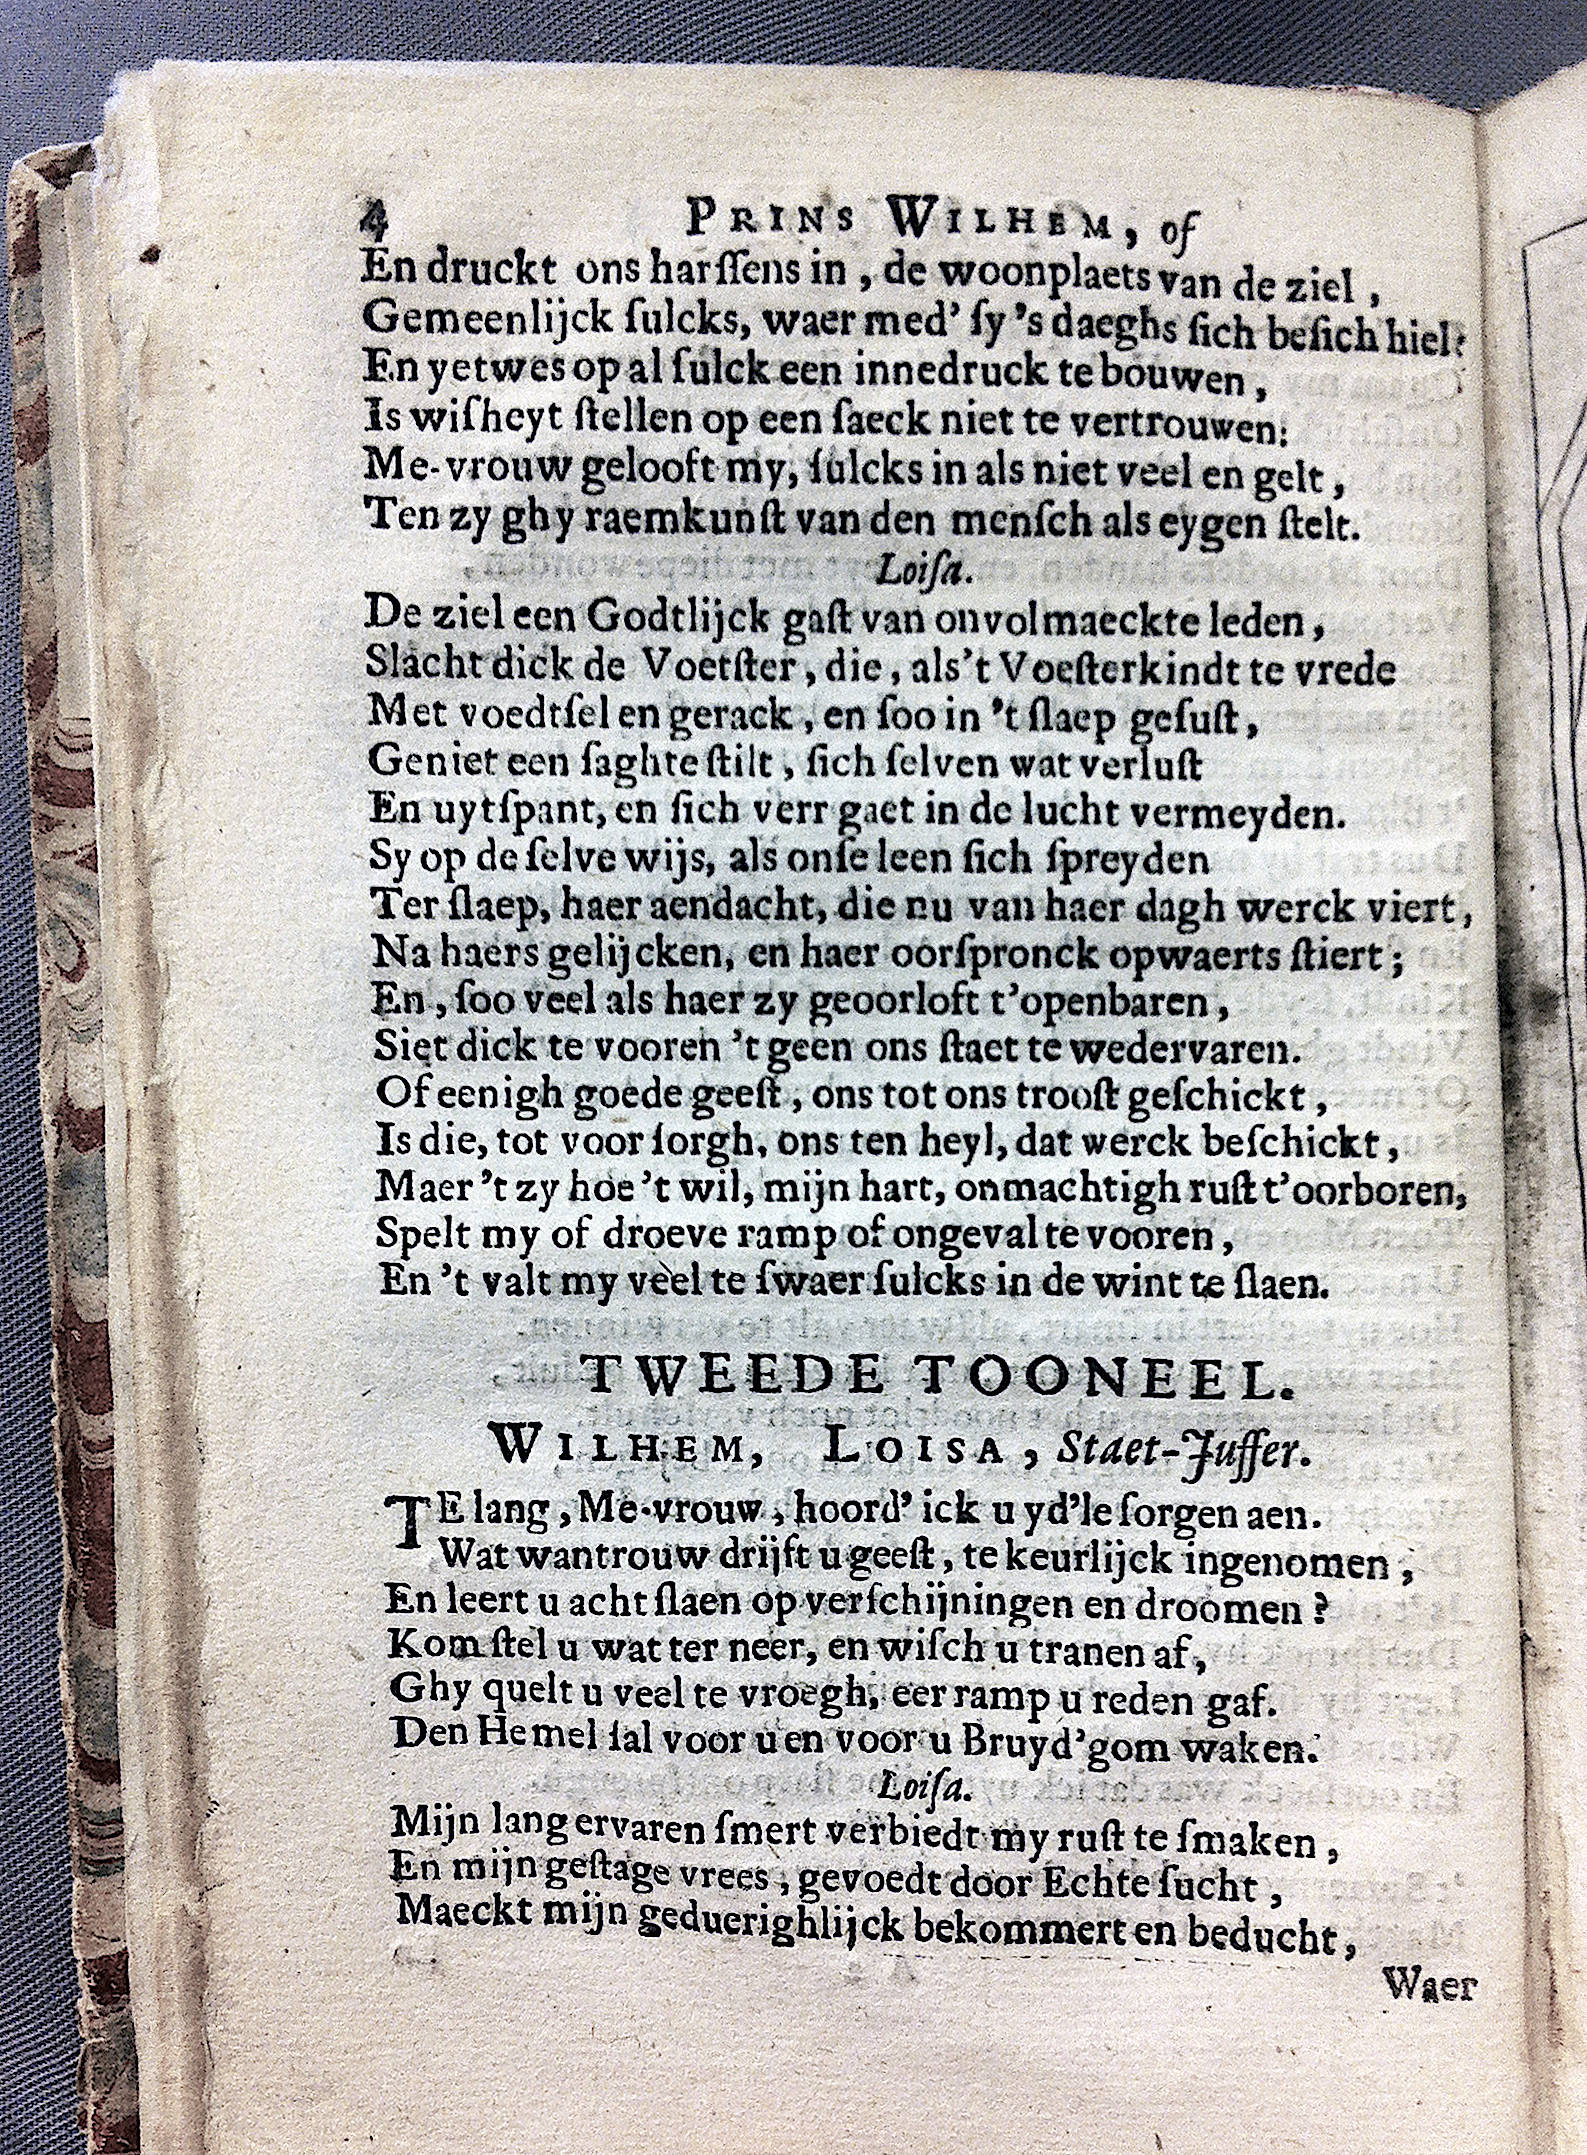 4 PRINS WILHEM, of
En druckt ons harſſens in, de woonplaets van de ziel,
Gemeenlijck ſulcks, waer med' ſy 's daeghs ſich beſich hiel:
En yetwes op al ſulck een innedruck te bouwen,
Is wiſheyt ſtellen op een ſaeck niet te vertrouwen:
Me-vrouw gelooft my, ſulcks in als niet veel en gelt,
Ten zy ghy raemkunſt van den menſch als eygen ſtelt.
Loiſa.
De ziel een Godtlijck gaſt van onvolmaeckte leden,
Slacht dick de Voetſter, die, als 't Voeſterkindt te vrede
Met voedtſel en gerack, en ſoo in 't ſlaep geſuſt,
Geniet een ſaghte ſtilt, ſich ſelven wat verluſt
En uytſpant, en ſich verr gaet in de lucht vermeyden.
Sy op de ſelve wijs, als onſe leen ſich ſpreyden
Ter ſlaep, haer aendacht, die nu van haer dagh werck viert,
Na haers gelijcken, en haer oorſpronck opwaerts ſtiert;
En, ſoo veel als haer zy geoorloft t'openbaren,
Siet dick te vooren 't geen ons ſtaet te wedervaren.
Of eenigh goede geeſt, ons tot ons trooſt geſchickt,
Is die, tot voor ſorgh, ons ten heyl, dat werck beſchickt,
Maer 't zy hoe 't wil, mijn hart, onmachtigh ruſt t'oorboren,
Spelt my of droeve ramp of ongeval te vooren,
En 't valt my veel te ſwaer ſulcks in de wint te ſlaen.
TWEEDE TOONEEL.
WILHEM, LOISA, Staet-Juffer.
TE lang, Me-vrouw, hoord' ick u yd'le ſorgen aen.
Wat wantrouw drijft u geeſt, te keurlijck ingenomen,
En leert u acht ſlaen op verſchijningen en droomen?
Kom ſtel u wat ter neer, en wiſch u tranen af,
Ghy quelt u veel te vroegh, eer ramp u reden gaf.
Den Hemel ſal voor u en voor u Bruyd'gom waken.
Loiſa.
Mijn lang ervaren ſmert verbiedt my ruſt te ſmaken,
En mijn geſtage vrees, gevoedt door Echte ſucht,
Maeckt mijn geduerighlijck bekommert en beducht,
Waer